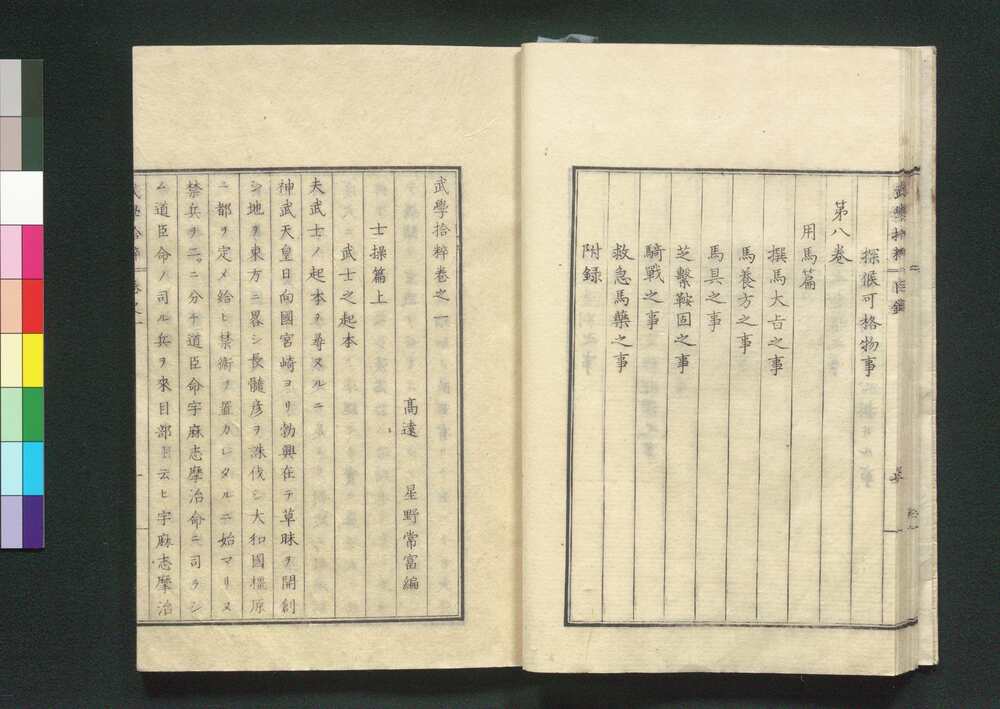 探候可格物事
第八巻
用馬篇
撰馬大㫖之事
馬養方之事
馬具之事
芝繫鞍固之事
騎戰之事
救急馬藥之事
附録
武學拾粹巻之一
高遠 星野常富編
士操篇上
武士之起本
夫武士ノ起本ヲ尋ヌルニ
神武天皇日向國宮崎ヨリ勃興在テ草昧ヲ開創
シ地ヲ東方ニ畧シ長髓彦ヲ誅伐シ大和國橿原
ニ都ヲ定メ給ヒ禁衞ヲ置カレタルニ始マリヌ
禁兵ヲ二ニ分チ道臣命宇麻志摩治命ニ司ラシ
ム道臣命ノ司ル兵ヲ來目部ト云ヒ宇麻志摩治